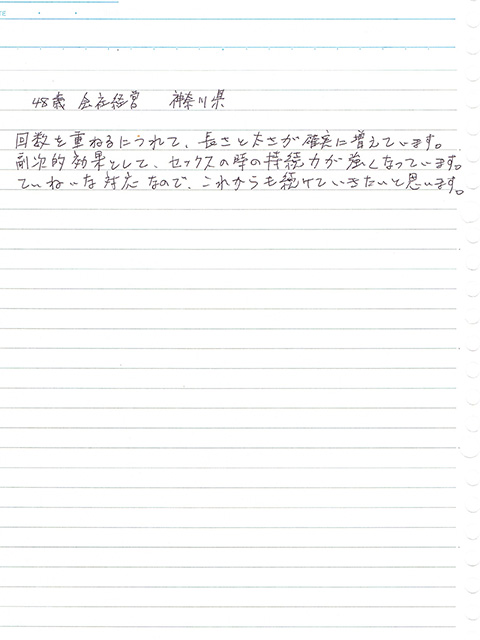 48歳 会社経営 神奈川県
回数を重ねるにつれて、長さと太さが確実に増えています。
副次的効果として、セックスの時の持続力が強くなっています。
ていねいな対応なので、これからも続けていきたいと思います。